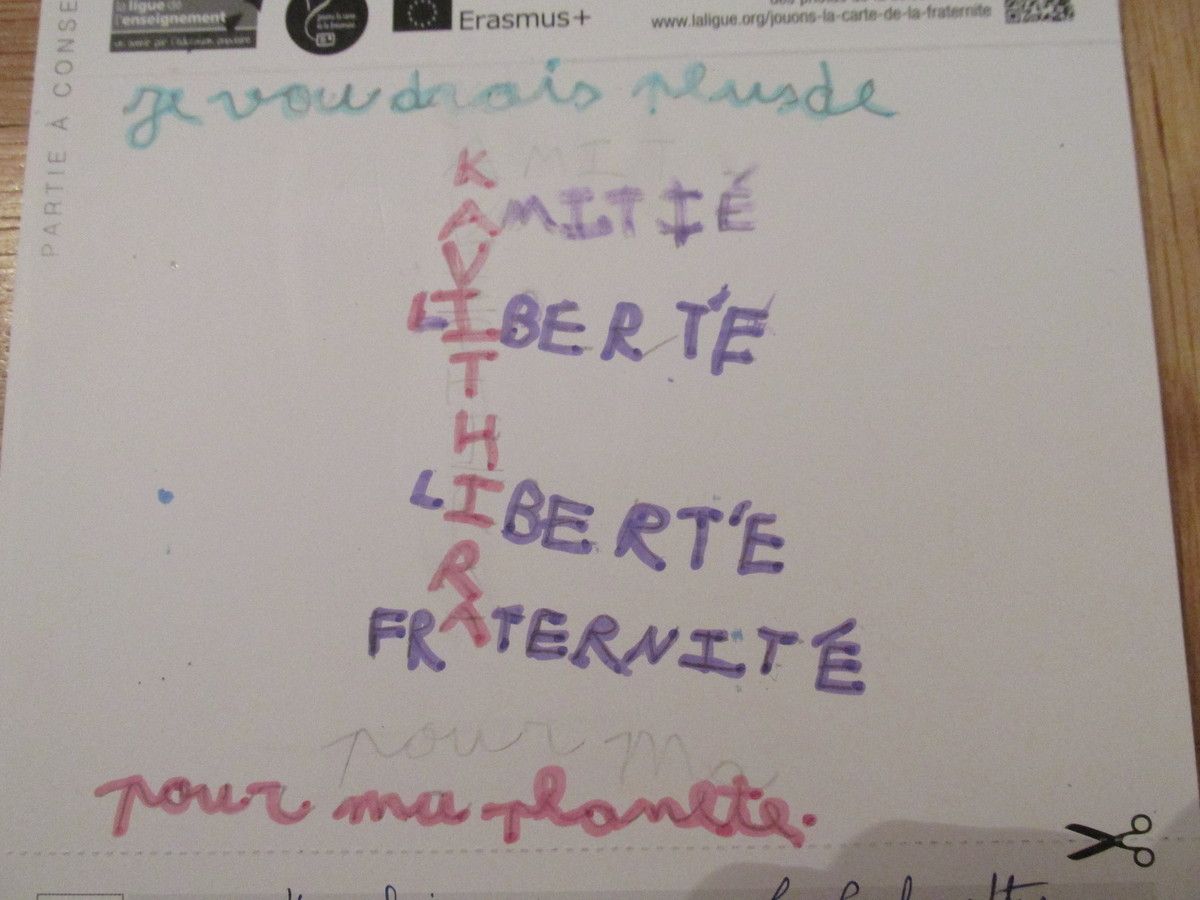 la ligue de
l'enseignement
Erasmus+
www.laligue.org/jouons-la-carte-de-la-fraternite
PARTIE À CONSE
je voudrais plus de
MIT
K
AMITIÉ
V
LIBERTÉ
T
H
LIBERTÉ
R
FRATERNITÉ
pour ma
pour ma planète.